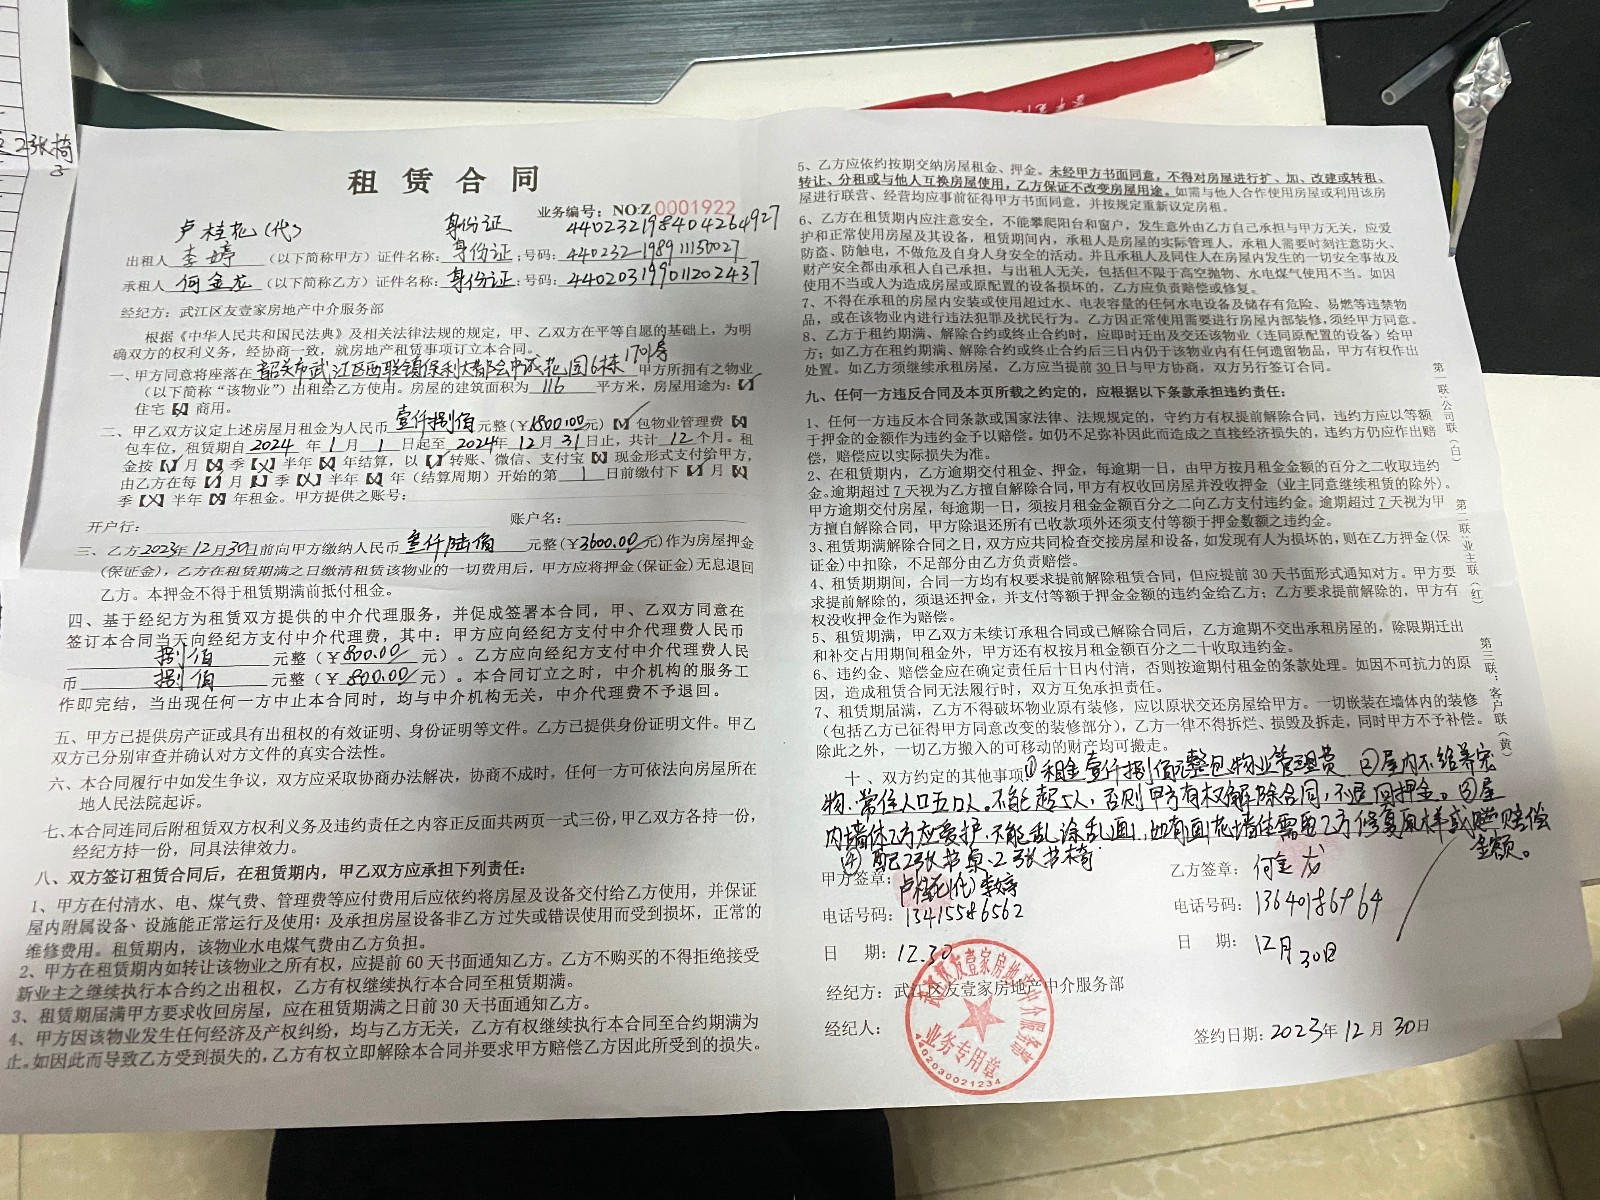 2张椅
子
租 赁 合 同
业务编号：NO:Z 0001922
卢桂花(代) 身份证 440232198404264927
出租人 李婷 （以下简称甲方）证件名称：身份证；号码：440232-198911130027
承租人 何金龙 （以下简称乙方）证件名称：身份证；号码：440203199011202437
经纪方：武江区友壹家房地产中介服务部
根据《中华人民共和国民法典》及相关法律法规的规定，甲、乙双方在平等自愿的基础上，为明
确双方的权利义务，经协商一致，就房地产租赁事项订立本合同。
一、甲方同意将座落在 韶关市武江区西联镇保利大都会中诚花园6栋1701房 甲方所拥有之物业
（以下简称“该物业”）出租给乙方使用。房屋的建筑面积为 116 平方米，房屋用途为：【✓】
住宅【×】商用。
二、甲乙双方议定上述房屋月租金为人民币 壹仟捌佰 元整（¥1800.00元）【✓】包物业管理费【×】
包车位，租赁期自 2024 年 1 月 1 日起至 2024年 12 月 31 日止，共计 12 个月。租
金按【✓】月【×】季【×】半年【×】年结算，以【✓】转账、微信、支付宝【×】现金形式支付给甲方，
由乙方在每【✓】月【×】季【×】半年【×】年（结算周期）开始的第 1 日前缴付下【✓】月【×】
季【×】半年【×】年租金。甲方提供之账号：
开户行： 账户名：
三、乙方2023年12月30日前向甲方缴纳人民币 叁仟陆佰 元整（¥3600.00元）作为房屋押金
(保证金)，乙方在租赁期满之日缴清租赁该物业的一切费用后，甲方应将押金(保证金)无息退回
乙方。本押金不得于租赁期满前抵付租金。
四、基于经纪方为租赁双方提供的中介代理服务，并促成签署本合同，甲、乙双方同意在
签订本合同当天向经纪方支付中介代理费，其中：甲方应向经纪方支付中介代理费人民币
捌佰 元整（¥800.00 元）。乙方应向经纪方支付中介代理费人民
币 捌佰 元整（¥800.00 元）。本合同订立之时，中介机构的服务工
作即完结，当出现任何一方中止本合同时，均与中介机构无关，中介代理费不予退回。
五、甲方已提供房产证或具有出租权的有效证明、身份证明等文件。乙方已提供身份证明文件。甲乙
双方已分别审查并确认对方文件的真实合法性。
六、本合同履行中如发生争议，双方应采取协商办法解决，协商不成时，任何一方可依法向房屋所在
地人民法院起诉。
七、本合同连同后附租赁双方权利义务及违约责任之内容正反面共两页一式三份，甲乙双方各持一份，
经纪方持一份，同具法律效力。
八、双方签订租赁合同后，在租赁期内，甲乙双方应承担下列责任：
1、甲方在付清水、电、煤气费、管理费等应付费用后应依约将房屋及设备交付给乙方使用，并保证
屋内附属设备、设施能正常运行及使用；及承担房屋设备非乙方过失或错误使用而受到损坏，正常的
维修费用。租赁期内，该物业水电煤气费由乙方负担。
2、甲方在租赁期内如转让该物业之所有权，应提前 60 天书面通知乙方。乙方不购买的不得拒绝接受
新业主之继续执行本合约之出租权，乙方有权继续执行本合同至租赁期满。
3、租赁期届满甲方要求收回房屋，应在租赁期满之日前 30 天书面通知乙方。
4、甲方因该物业发生任何经济及产权纠纷，均与乙方无关，乙方有权继续执行本合同至合约期满为
止。如因此而导致乙方受到损失的，乙方有权立即解除本合同并要求甲方赔偿乙方因此所受到的损失。
5、乙方应依约按期交纳房屋租金、押金。未经甲方书面同意，不得对房屋进行扩、加、改建或转租、
转让、分租或与他人互换房屋使用，乙方保证不改变房屋用途。如需与他人合作使用房屋或利用该房
屋进行联营、经营均应事前征得甲方书面同意，并按规定重新议定房租。
6、乙方在租赁期内应注意安全，不能攀爬阳台和窗户，发生意外由乙方自己承担与甲方无关，应爱
护和正常使用房屋及其设备，租赁期间内，承租人是房屋的实际管理人，承租人需要时刻注意防火、
防盗、防触电，不做危及自身人身安全的活动。并且承租人及同住人在房屋内发生的一切安全事故及
财产安全都由承租人自己承担，与出租人无关，包括但不限于高空抛物、水电煤气使用不当。如因
使用不当或人为造成房屋或原配置的设备损坏的，乙方应负责赔偿或修复。
7、不得在承租的房屋内安装或使用超过水、电表容量的任何水电设备及储存有危险、易燃等违禁物
品，或在该物业内进行违法犯罪及扰民行为。乙方因正常使用需要进行房屋内部装修，须经甲方同意。
8、乙方于租约期满、解除合约或终止合约时，应即时迁出及交还该物业（连同原配置的设备）给甲
方；如乙方在租约期满、解除合约或终止合约后三日内仍于该物业内有任何遗留物品，甲方有权作出
处置。如乙方须继续承租房屋，乙方应当提前 30 日与甲方协商，双方另行签订合同。
九、任何一方违反合同及本页所载之约定的，应根据以下条款承担违约责任：
1、任何一方违反本合同条款或国家法律、法规规定的，守约方有权提前解除合同，违约方应以等额
于押金的金额作为违约金予以赔偿。如仍不足弥补因此而造成之直接经济损失的，违约方仍应作出赔
偿，赔偿应以实际损失为准。
2、在租赁期内，乙方逾期交付租金、押金，每逾期一日，由甲方按月租金金额的百分之二收取违约
金。逾期超过 7 天视为乙方擅自解除合同，甲方有权收回房屋并没收押金（业主同意继续租赁的除外）。
甲方逾期交付房屋，每逾期一日，须按月租金金额百分之二向乙方支付违约金。逾期超过 7 天视为甲
方擅自解除合同，甲方除退还所有已收款项外还须支付等额于押金数额之违约金。
3、租赁期满解除合同之日，双方应共同检查交接房屋和设备，如发现有人为损坏的，则在乙方押金(保
证金)中扣除，不足部分由乙方负责赔偿。
4、租赁期期间，合同一方均有权要求提前解除租赁合同，但应提前 30 天书面形式通知对方。甲方要
求提前解除的，须退还押金，并支付等额于押金金额的违约金给乙方；乙方要求提前解除的，甲方有
权没收押金作为赔偿。
5、租赁期满，甲乙双方未续订承租合同或已解除合同后，乙方逾期不交出承租房屋的，除限期迁出
和补交占用期间租金外，甲方还有权按月租金额百分之二十收取违约金。
6、违约金、赔偿金应在确定责任后十日内付清，否则按逾期付租金的条款处理。如因不可抗力的原
因，造成租赁合同无法履行时，双方互免承担责任。
7、租赁期届满，乙方不得破坏物业原有装修，应以原状交还房屋给甲方。一切嵌装在墙体内的装修
（包括乙方已征得甲方同意改变的装修部分），乙方一律不得拆烂、损毁及拆走，同时甲方不予补偿。
除此之外，一切乙方搬入的可移动的财产均可搬走。
十、双方约定的其他事项①租金壹仟捌佰元整包物业管理费 ②屋内不给养宠
物、常住人口五口人。不能超5人，否则甲方有权解除合同，不退回押金。③屋
内墙体乙方应爱护，不能乱涂乱画，如有画花墙体需由乙方修复原样或赔偿
金额。
④配2张书桌、2张书椅
甲方签章： 卢桂花(代) 李婷
电话号码： 13415586562
日 期： 12.30
乙方签章： 何金龙
电话号码： 13640186964
日 期： 12月30日
经纪方：武江区友壹家房地产中介服务部
经纪人：
签约日期：2023年 12 月 30日
武江区友壹家房地产中介服务部
业务专用章
4402030021234
第一联：公司联（白）
第二联：业主联（红）
第三联：客户联（黄）